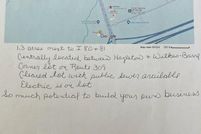 1.3 acres next to I 80 & 81
Centrally located between Hazleton & Wilkes-Barre
Corner lot on Route 309
Cleared lot with public sewer available
Electric is on lot
So much potential to build your own business